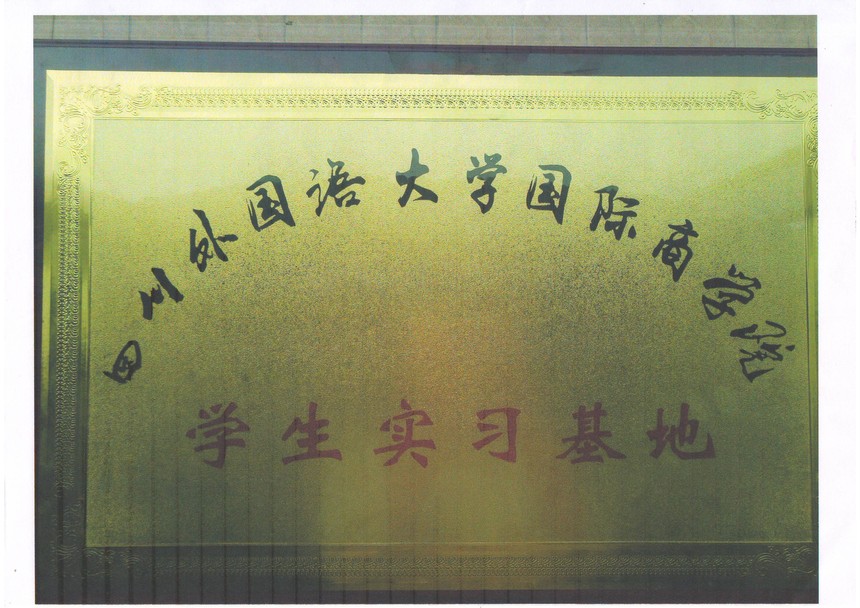 四川外国语大学国际商学院
学生实习基地